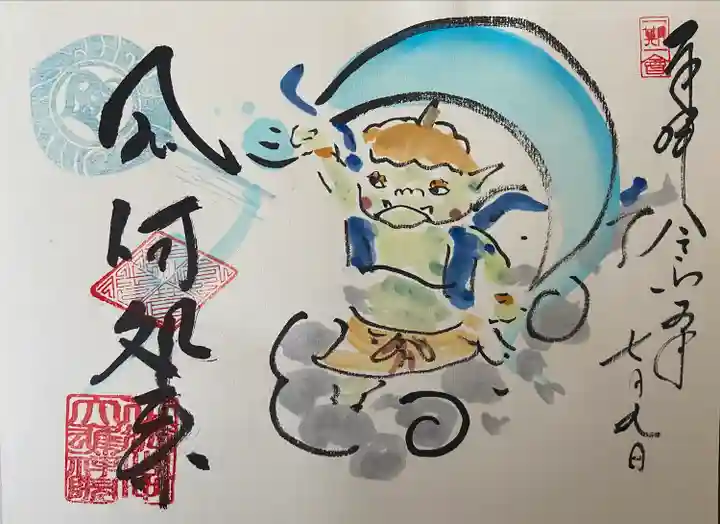 一期一會
奉拝 令和五年
七月九日
風何処来